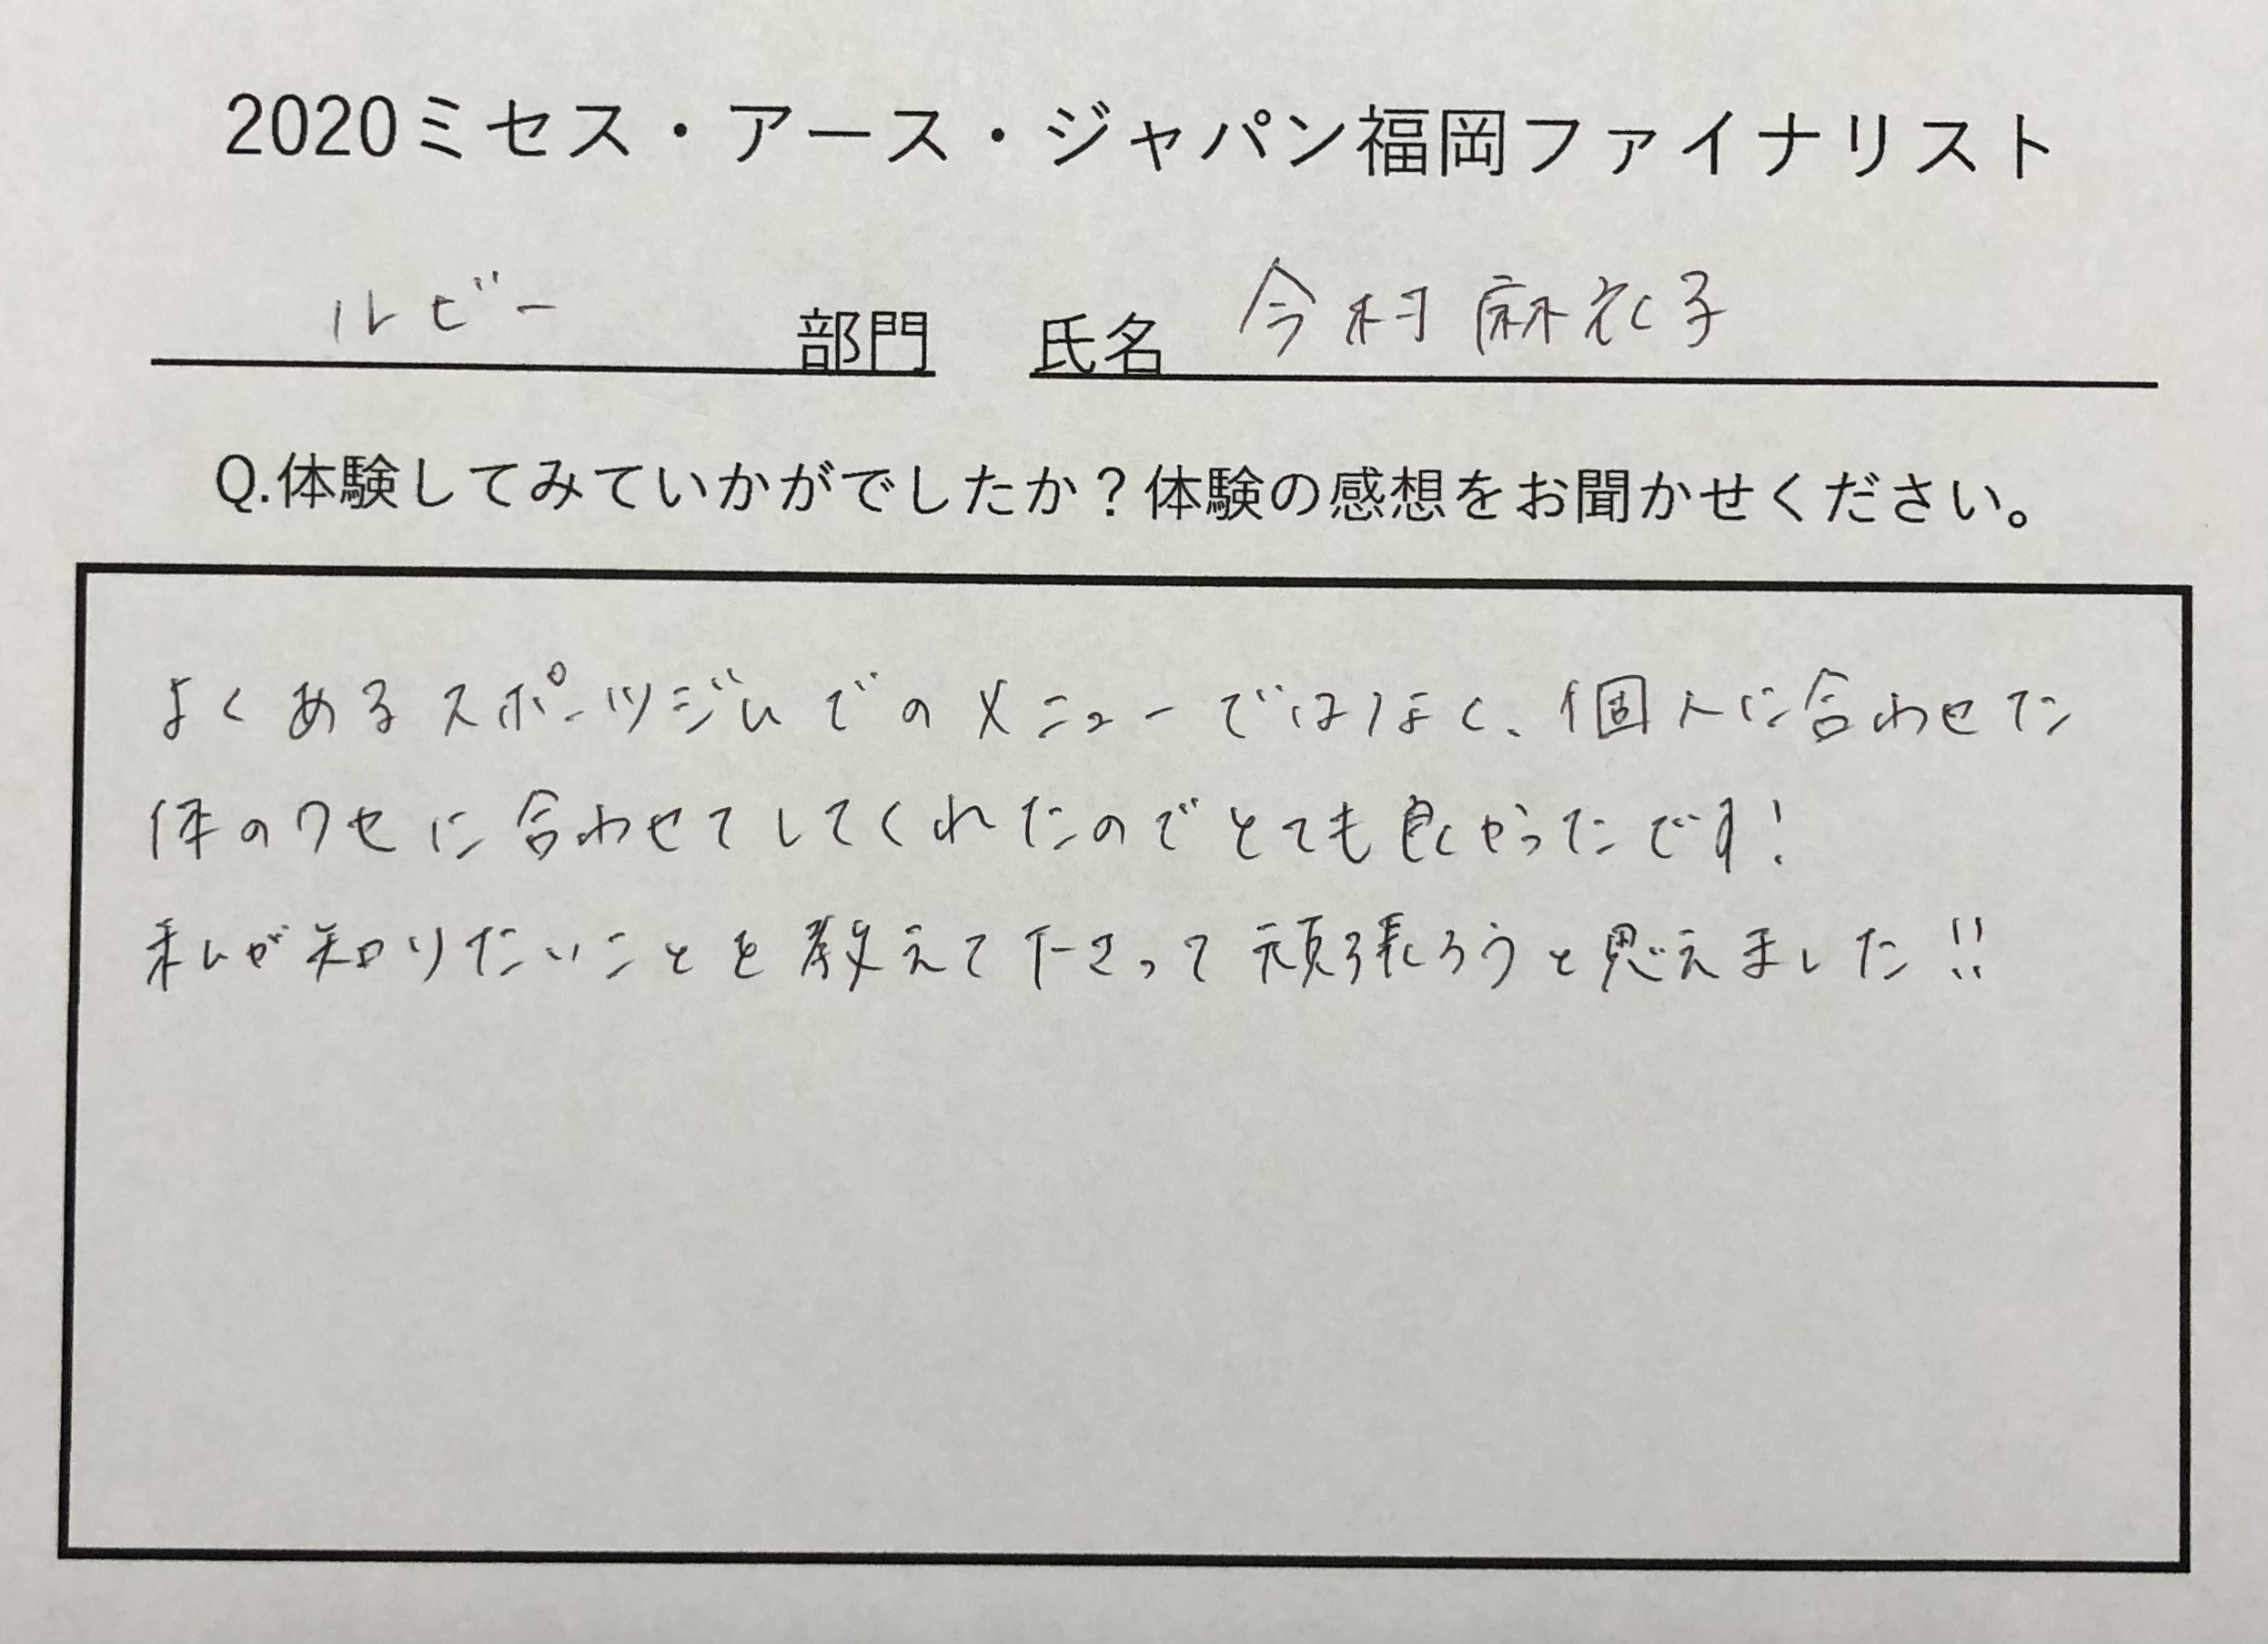 2020ミセス・アース・ジャパン福岡ファイナリスト
ルビー 部門 氏名 今村麻衣子
Q.体験してみていかがでしたか？体験の感想をお聞かせください。
よくあるスポーツジムでのメニューではなく、個人に合わせた
体のクセに合わせてしてくれたのでとても良かったです！
私が知りたいことを教えて下さって頑張ろうと思えました!!